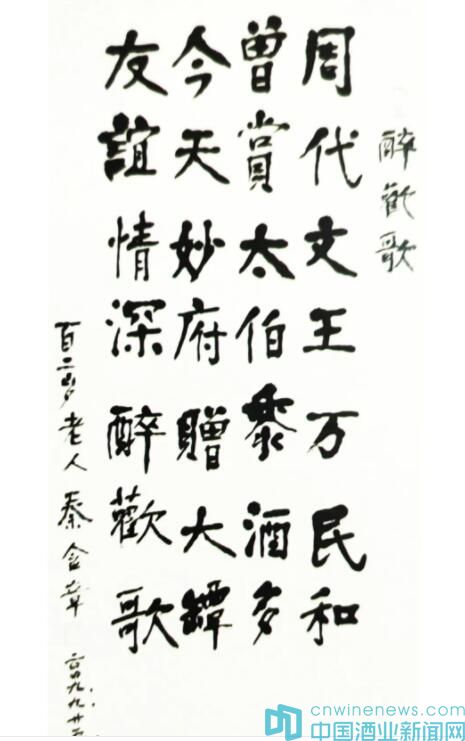 醉歡歌
周代文王万民和
曾賞太伯黍酒多
今天妙府贈大罈
友誼情深醉歡歌
百二岁老人秦含章 二〇〇九.九.廿
cnwinenews.com
中国酒业新闻网